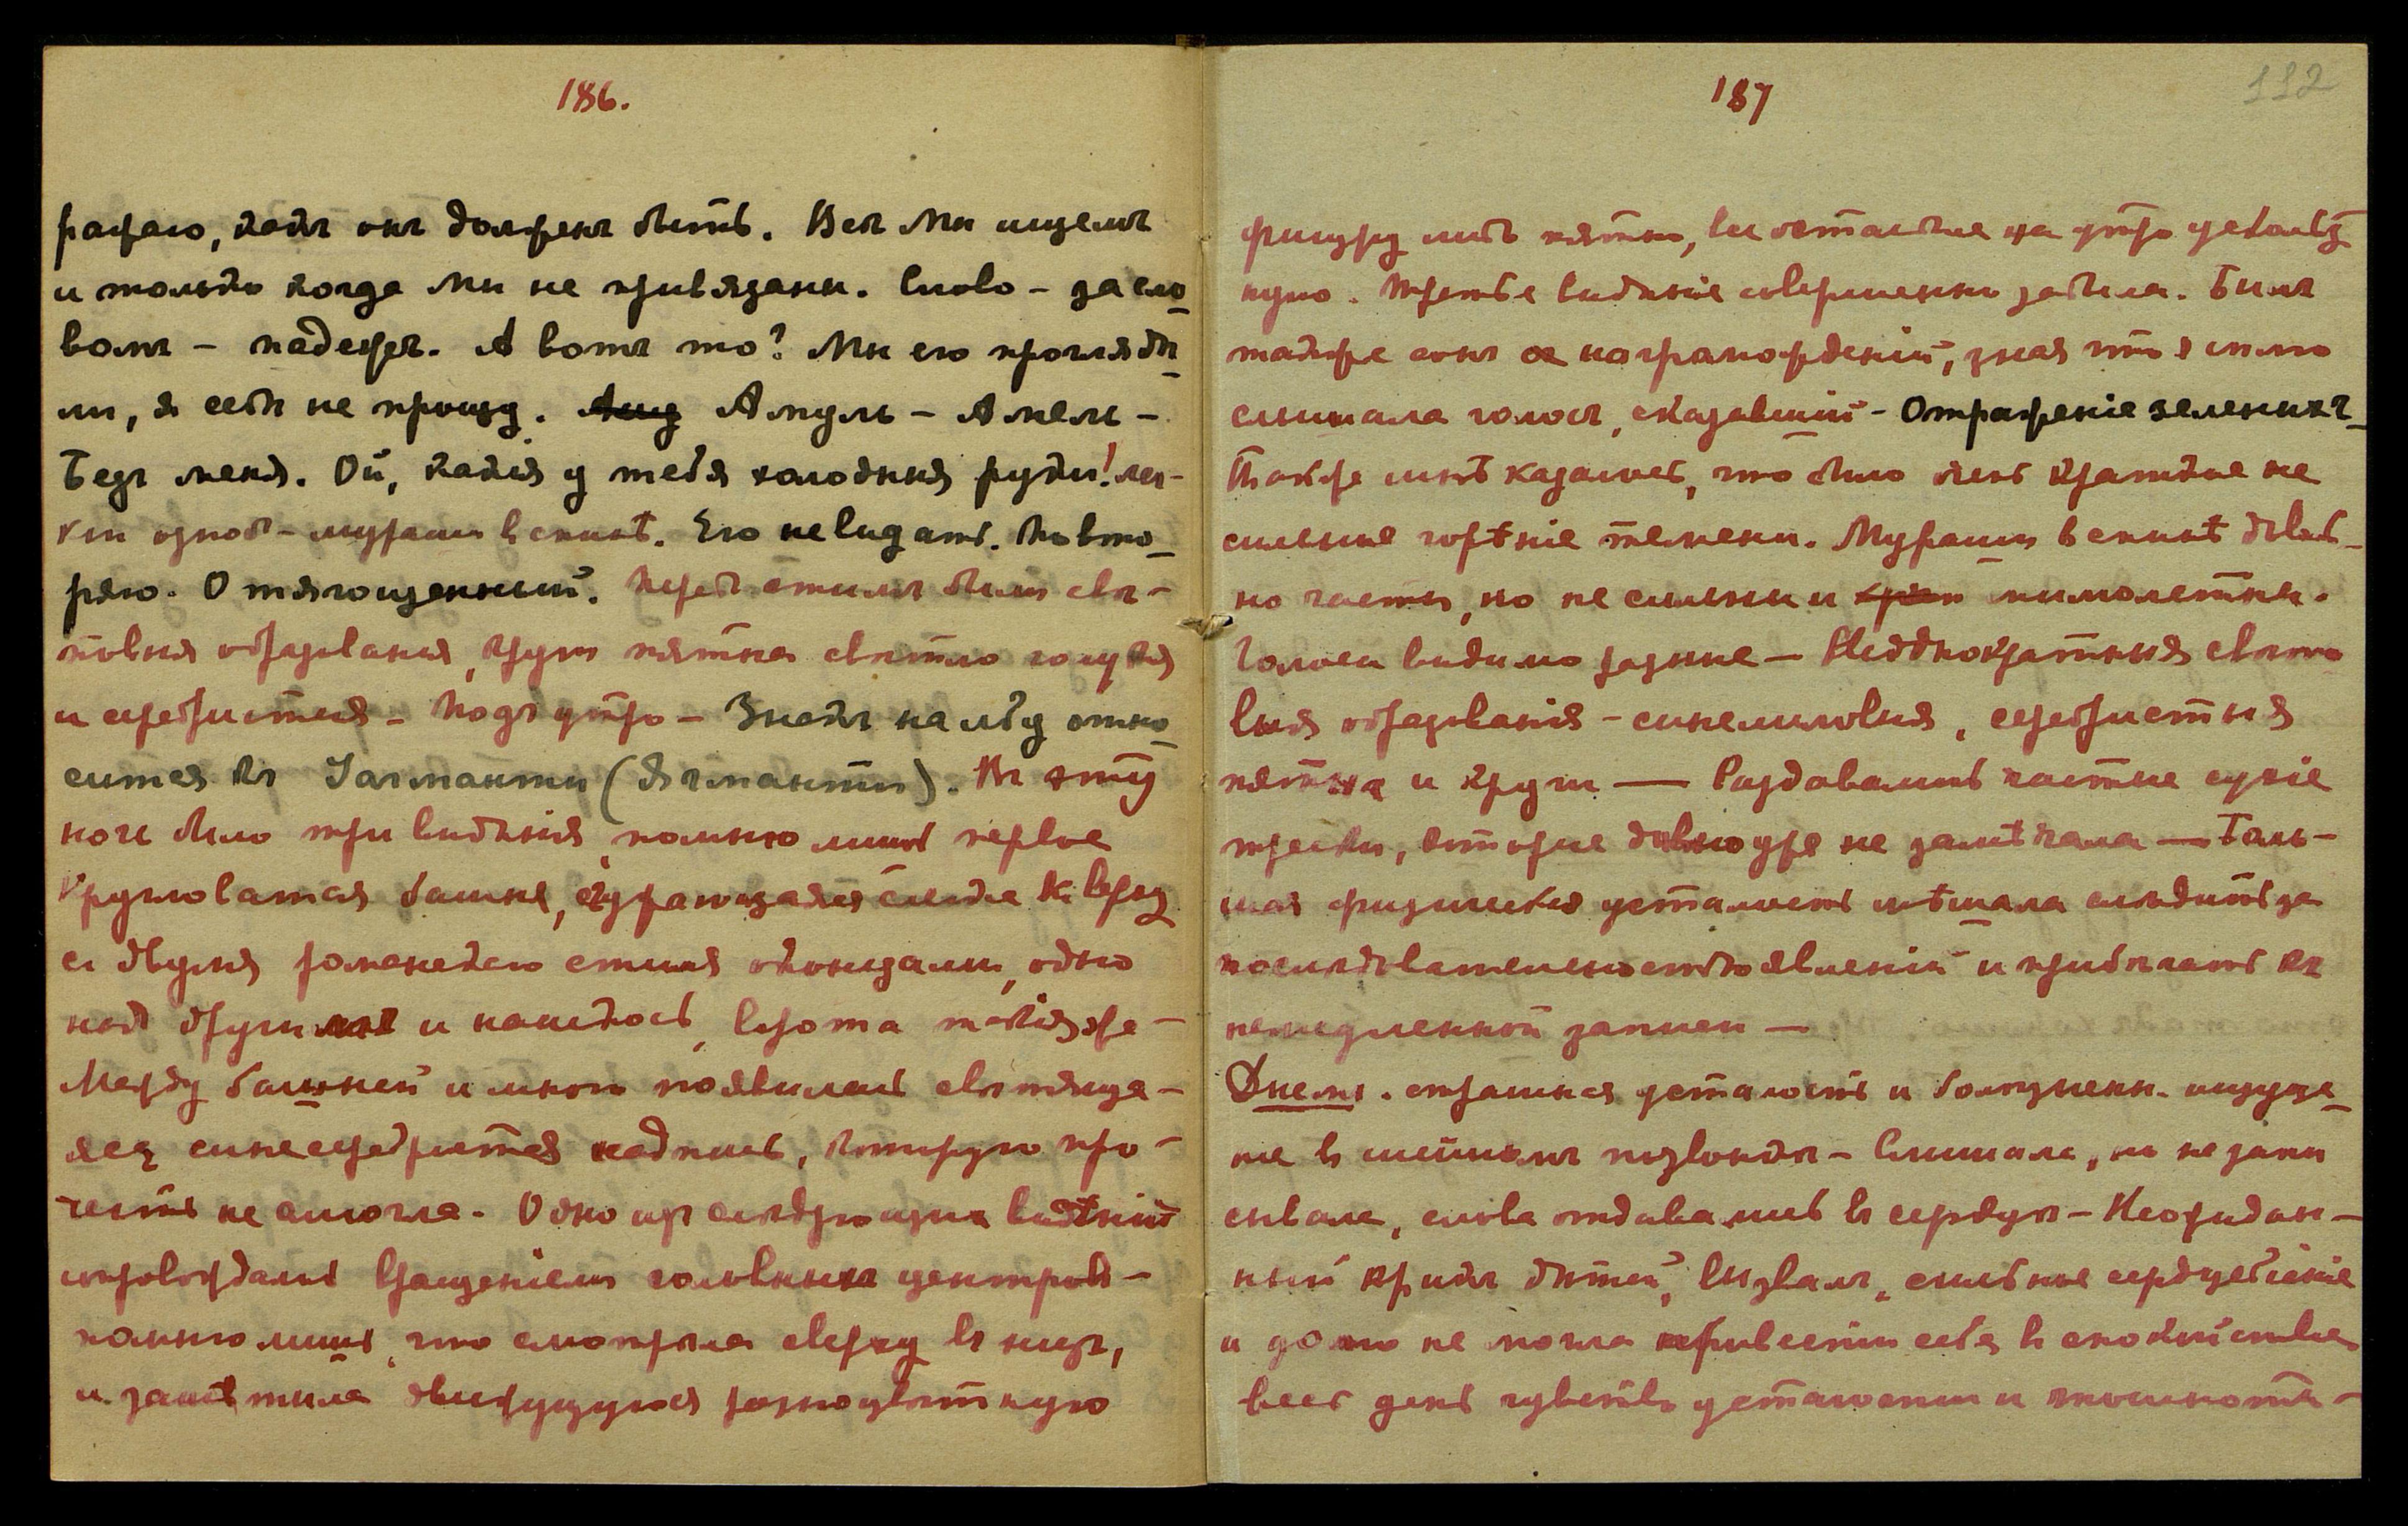 186.
ражаю, какъ онъ долженъ быть. Всѣ мы ищемъ
и только когда мы не привязаны. Слово – за сло-
вомъ – надежда. А вотъ то? Мы его прогляды-
ли, я себѣ не прощу. Ампуль – Амель –
Безъ меня. Ой, какія у тебя холодныя руки! лег-
кій ознобъ – мураши въ спинѣ. Его не видать. Повто-
ряю. Отягощенный. Передъ этимъ были свѣ-
товыя образованія, круги пятна свѣтло голубыя
и серебристыя – Подъ утро – Знакъ на лбу отно-
сится къ Уагманти (Ягманти). Въ эту
ночь было три видѣнія, помню лишь первое
кругловатая башня, суживающаяся слегка къ верху
съ двумя романскаго стиля оконцами, одно
надъ другимъ и наискось, ворота такія же –
Между башней и мною появилась свѣтяща-
яся синесеребристая надпись, которую про-
честь не смогла – Одно изъ слѣдующихъ видѣній
сопровождалось вращеніемъ головныхъ центровъ –
помню лишь, что смотрѣла сверху въ низъ,
и замѣтила движущуюся разноцвѣтную
187
112
фигуру или пятно, въ остальное на утро ускольз-
нуло. Третье видѣніе совершенно забыла. Былъ
также сонъ о нагроможденій, зная что я
слышала голосъ, сказавшій – Отраженіе зеленыхъ –
Также мнѣ казалось, что было очень краткое не
сильное горѣніе темени. Мураши въ спинѣ доволь-
но часты, но не сильны и мимолетны.
Голоса видимо разные – Неоднократныя свѣто
выя образованія – синелиловыя, серебристыя
пятна и круги — Раздавались частые сухіе
трески, которые давно уже не замѣчала — Боль-
шая физическая усталость мѣшала слѣдить за
послѣдовательностью явленій и прибѣгать къ
немедленной записи —
Днемъ. страшная усталость и болѣзненн. ощуще-
ніе въ шейныхъ позвонкахъ – Слышала, но не запи
сывала, слова отдавались въ сердцѣ – Неожидан-
ный крикъ дѣтей, вызвалъ, сильное сердцебіеніе
и долго не могла привести себя въ спокойствіе
весь день чувство усталости и тошноты –